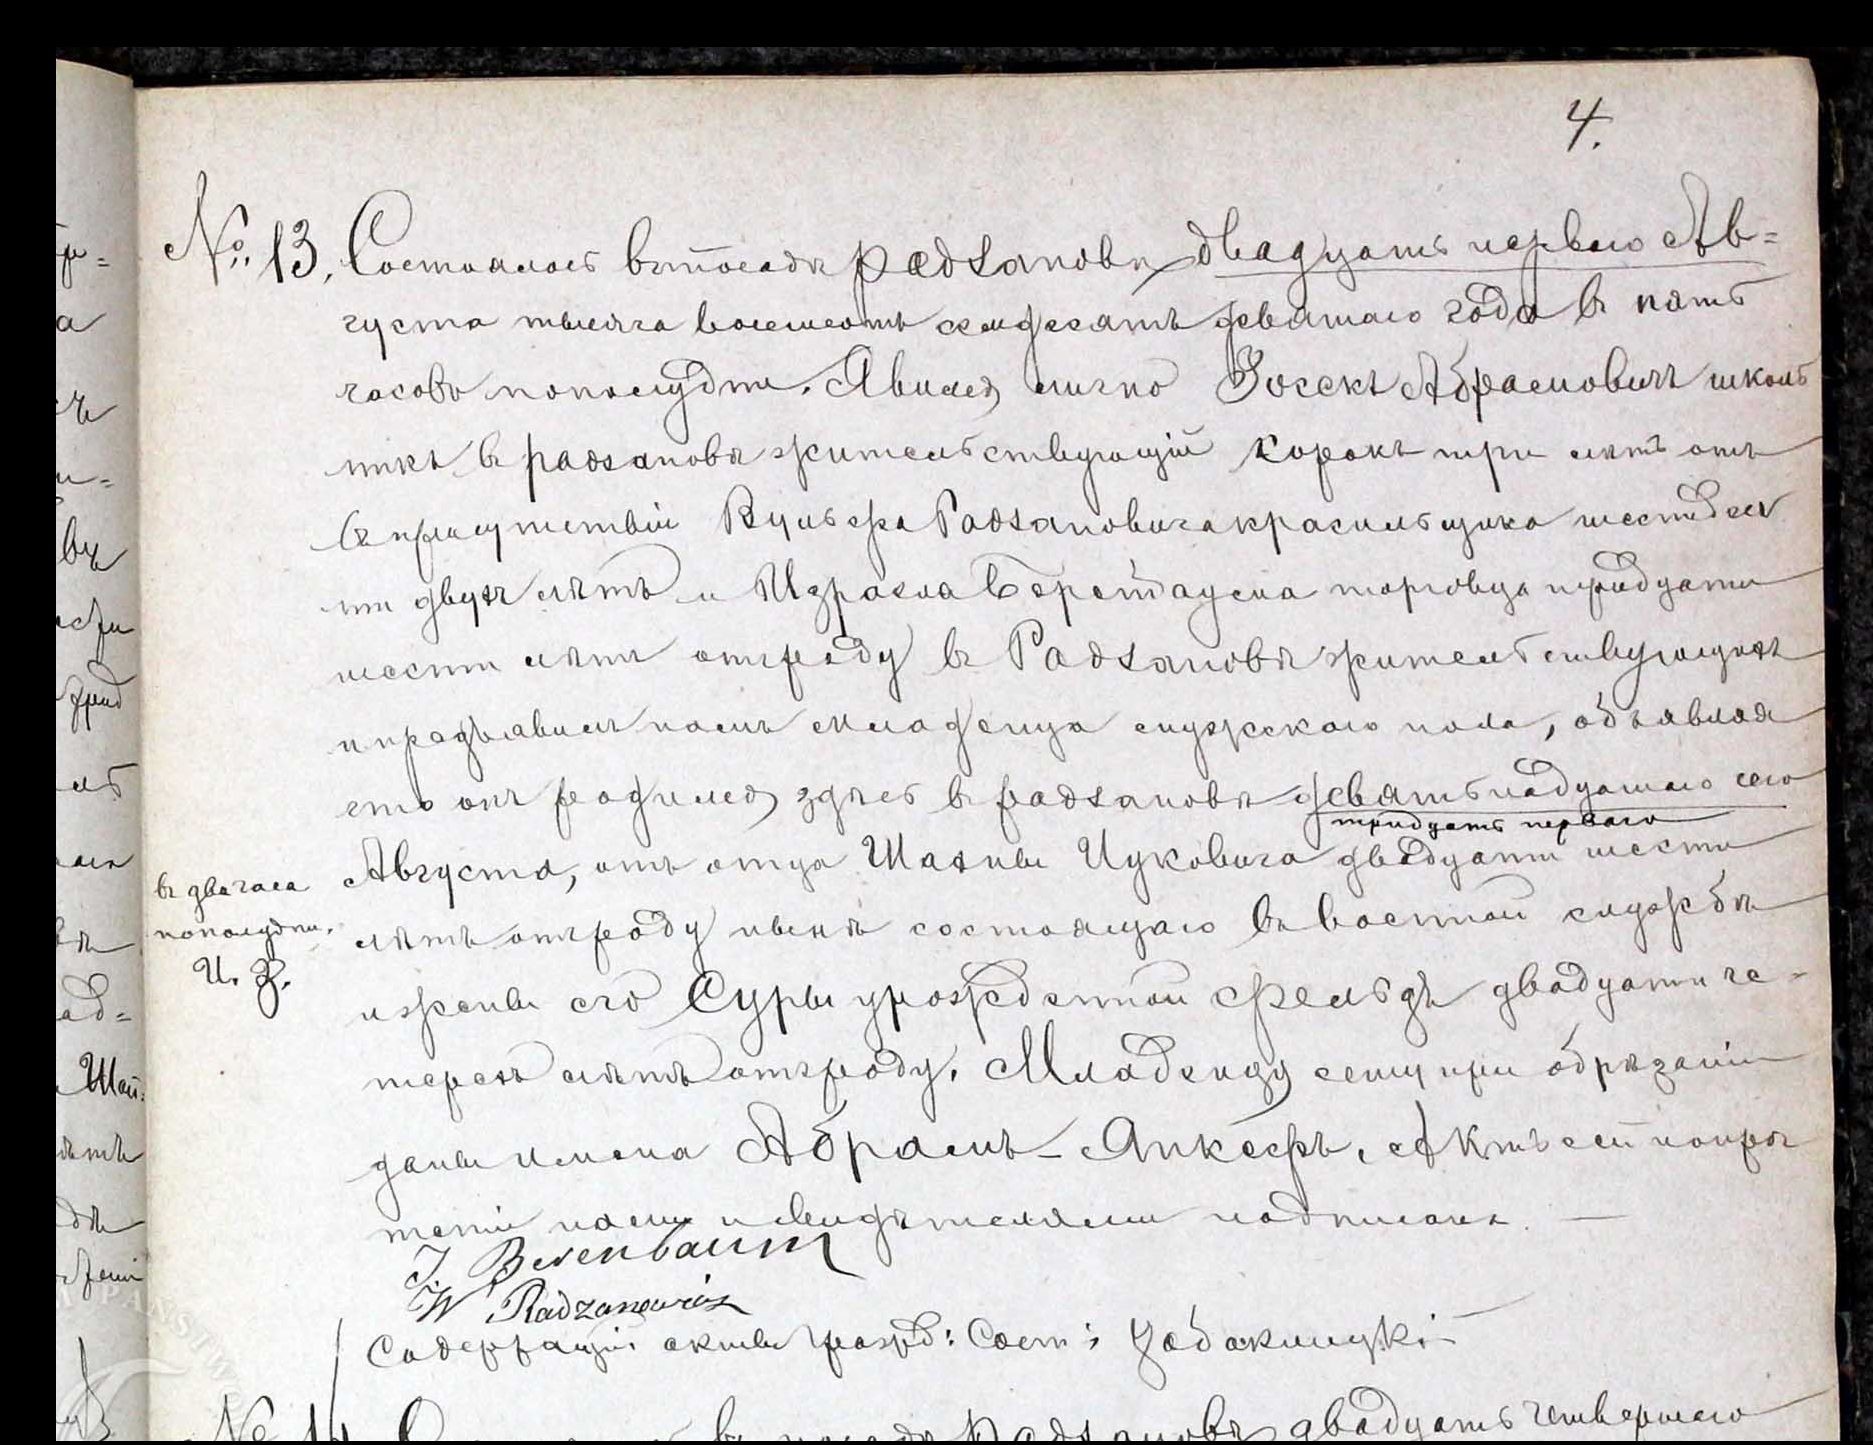 4.
№ 13. Состоялось въ посадѣ Радзановѣ двадцать перваго Ав=
густа тысяча восемсотъ семдесятъ девятаго года въ пять
часовъ пополудни. Явился лично Іосекъ Абрамовичъ школь
никъ въ Радзановѣ жительствующій сорокъ три лѣтъ отъ
въ присутствіи Вульфа Радзановича красильщика шестдеся
ти двухъ лѣтъ и Израела Беренбаума торговца тридцати
шести лѣтъ отъ роду въ Радзановѣ жительствующихъ
и предъявилъ намъ младенца мужескаго пола, объявляя
что онъ родился здѣсь въ Радзановѣ девятьнадцатаго сего
тридцать перваго
Августа, отъ отца Шахны Цуковича двадцати шести
въ два часа
пополудни.
И. З.
лѣтъ отъ роду нынѣ состоящаго въ военной службѣ
и жены его Суры урожденной Фельдъ двадцати че-
терехъ лѣтъ отъ роду. Младенцу сему при обрѣзаніи
даны имена Абрамъ-Янкефъ. Актъ сей по проч
теніи нами и свидѣтелями подписанъ. —
J Berenbaum
W Radzanowicz
Содержащій акты гражд: Сост:
Шай:
№ 14 Состоялось въ посадѣ Радзановѣ двадцать четвертаго